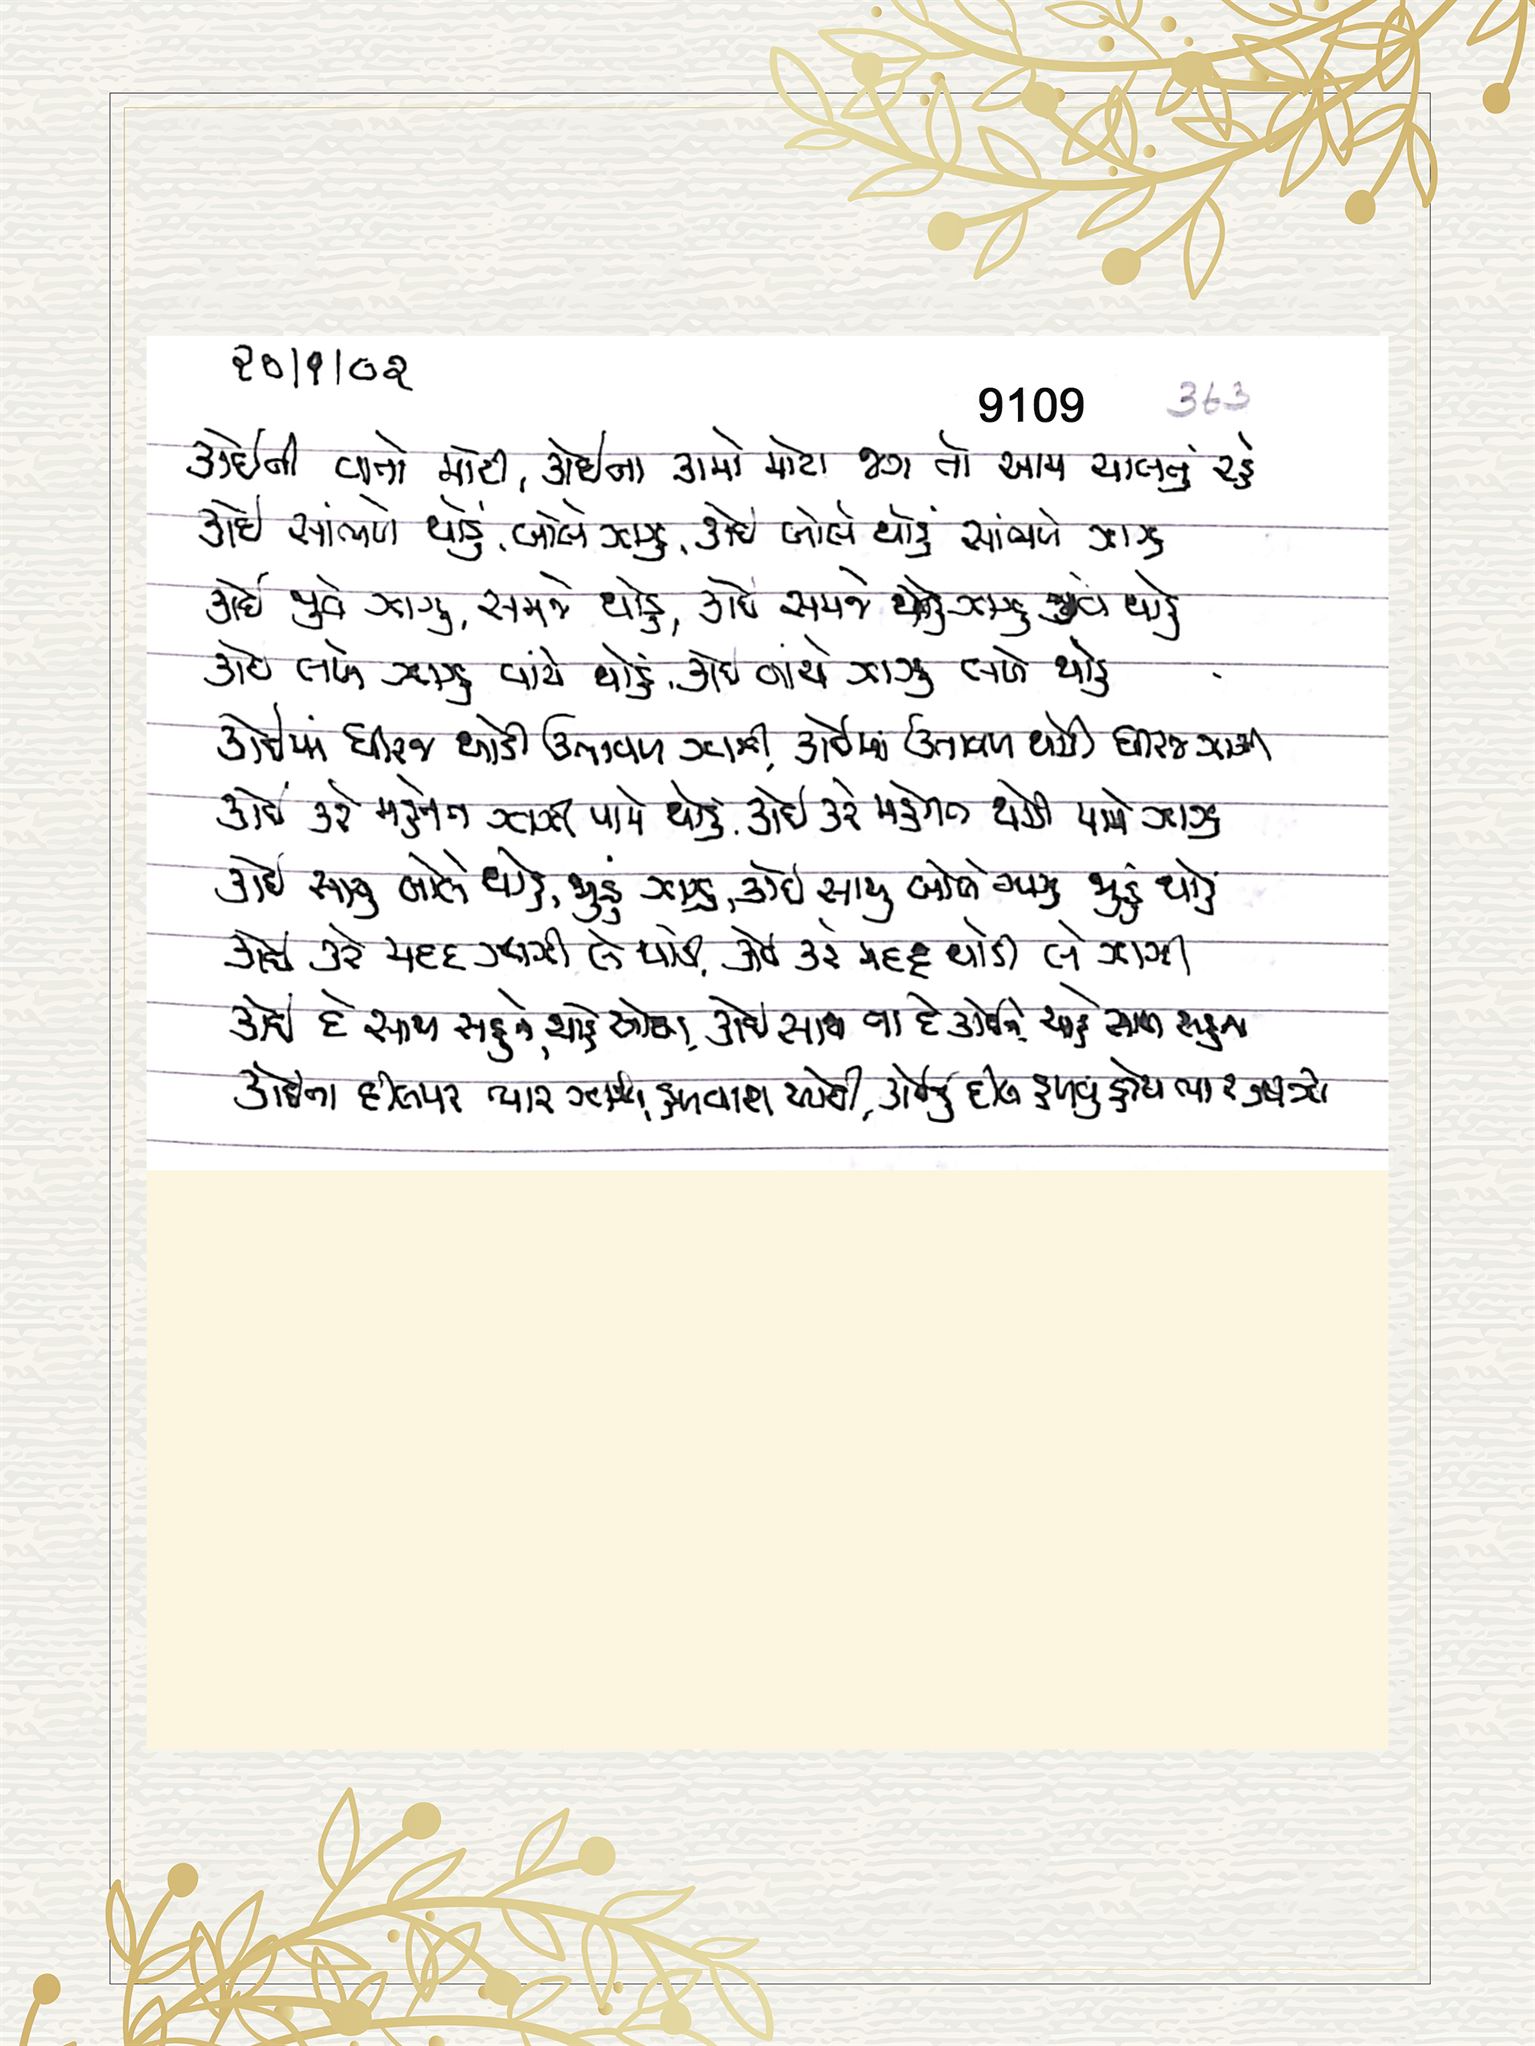 ૨૦|૧|૦૨
9109
363
કોઈની વાતો મોટી, કોઈના કામો મોટા જગ તો આમ ચાલતું રહે
કોઈ સાંભળે થોડું, બોલે ઝાઝુ, કોઈ બોલે થોડું સાંભળે ઝાઝુ
કોઈ જુવે ઝાઝુ, સમજે થોડુ, કોઈ સમજે ઝાઝુ જુવે થોડુ
કોઈ લખે ઝાઝુ વાંચે થોડું, કોઈ વાંચે ઝાઝુ લખે થોડુ
કોઈમાં ધીરજ થોડી ઉતાવળ ઝાઝી, કોઈમાં ઉતાવળ થોડી ધીરજ ઝાઝી
કોઈ કરે મહેનત ઝાઝી પામે થોડું, કોઈ કરે મહેનત થોડી પામે ઝાઝુ
કોઈ સાચુ બોલે થોડુ, જુઠ્ઠું ઝાઝુ, કોઈ સાચુ બોલે ઝાઝુ જુઠ્ઠું થોડું
કોઈ કરે મદદ ઝાઝી લે થોડી, કોઈ કરે મદદ થોડી લે ઝાઝી
કોઈ દે સાથ સહુને, ચાહે કોઈ સાથ ના દે કોઈને, ચાહે સાથ સહુના
કોઈના દીલપર પ્યાર ઝાઝો, કોઈનું દીલ પ્યાર